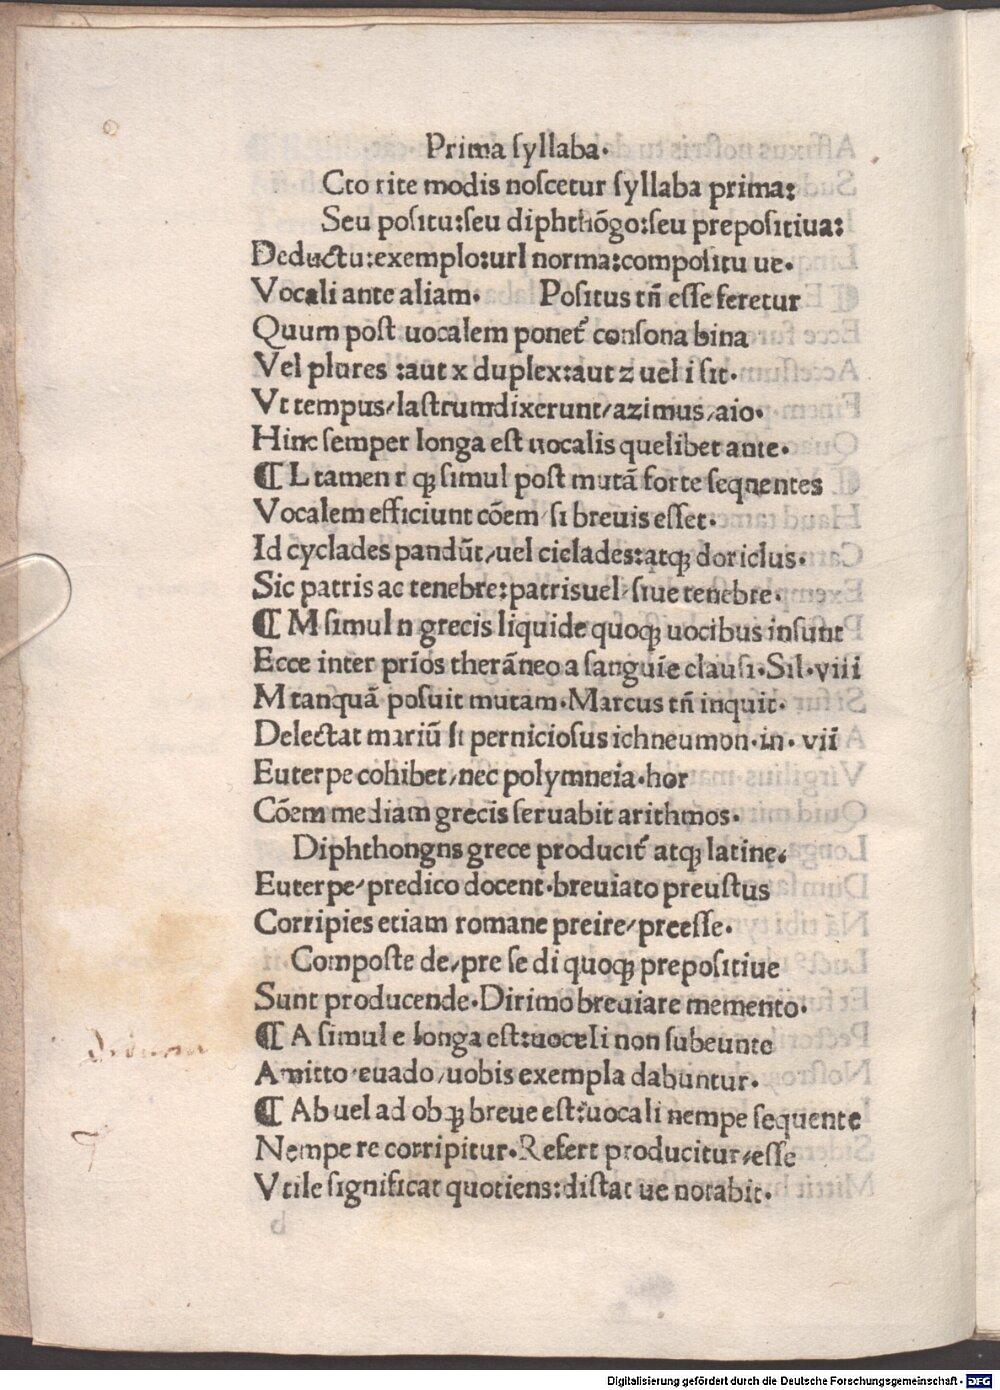 Prima syllaba.
Cto rite modis noscetur syllaba prima:
Seu positu:seu diphthōgo:seu prepositiua:
Deductu:exemplo:url norma:compositu ue.
Vocali ante aliam. Positus tñ esse feretur
Quum post uocalem ponet᷑ consona bina
Vel plures :aut x duplex:aut z uel i sit.
Vt tempus/lastrumdixerunt/azimus/aio.
Hinc semper longa est uocalis quelibet ante.
¶ L tamen r qꝫ simul post mutā forte seqnentes
Vocalem efficiunt cōem/si breuis esset.
Id cyclades pandūt/uel ciclades:atqꝫ doriclus.
Sic patris ac tenebre:patrisuel/siue tenebre.
¶ M simul n grecis liquide quoqꝫ uocibus insunt
Ecce inter prīos therāneo a sanguīe clausi.Sil.viii
M tanquā posuit mutam.Marcus tñ inquit.
Delectat mariū si perniciosus ichneumon.in.vii
Euterpe cohibet/nec polymneia.hor
Cōem mediam grecis seruabit arithmos.
Diphthongns grece producit᷑ atqꝫ latine.
Euterpe/predico docent.breuiato preustus
Corripies etiam romane preire/preesse.
Composte de/pre se di quoqꝫ prepositiue
Sunt producende.Dirimo breuiare memento.
¶ A simul e longa est:uoceli non subeunte
Amitto/euado/uobis exempla dabuntur.
¶ Ab uel ad ob qꝫ breue est:uocali nempe sequente
Nempe re corripitur.Refert producitur/esse
Vtile significat quotiens:distat ue notabit.
Digitalisierung gefördert durch die Deutsche Forschungsgemeinschaft - DFG